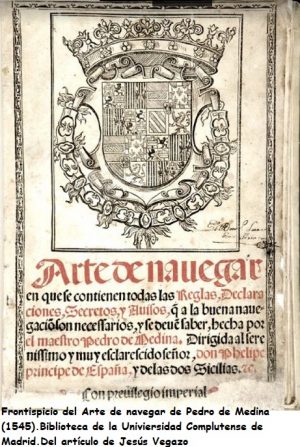 Arte de nauegar
en que se contienen todas las Reglas, Declara
ciones, Secretos, y Auisos, q̃ a la buena naue
gaciõ son necessarios, y se deuẽ saber, hecha por
el maestro Pedro de Medina. Dirigida al sere
nissimo y muy esclarescido señor, don Phelipe
principe de España, y de las dos Sicilias. ⁊c.
Con preuilegio imperial
Frontispicio del Arte de navegar de Pedro de Medina
(1545).Biblioteca de la Univiersidad Complutense de
Madrid.Del artículo de Jesús Vegazo